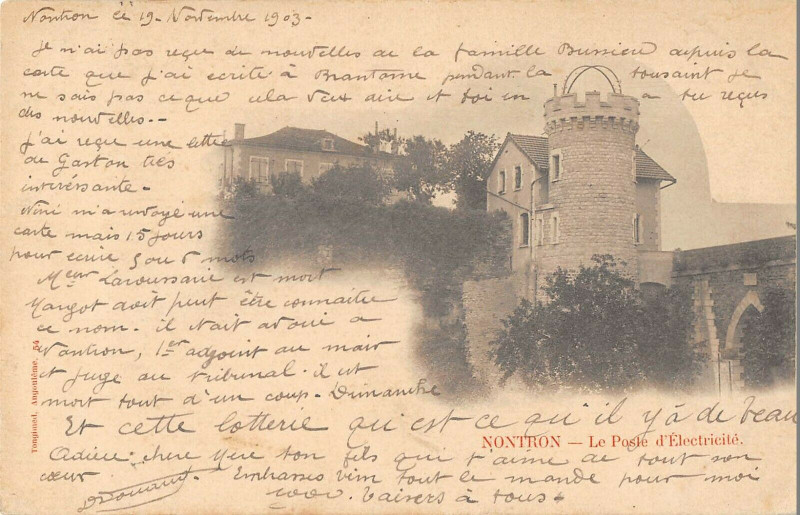 Nontron le 19 Novembre 1903.
Je n'ai pas reçu de nouvelles de la famille Bussieu depuis la
carte que j'ai écrite à Brantome pendant la tousaint je
ne sais pas ce que cela veux dire et toi en a tu reçus
des nouvelles. -
J'ai reçu une lettre
de Gaston très
intéréssante -
Néné m'a envoyé une
carte mais 15 jours
pour écrire 5 ou 6 mots
Meur Laroussarie est mort
Margot doit peut être connaitre
ce nom. il était avoué a
Nontron, 1er adjoint au mair
et juge au tribunal. il est
mort tout d'un coup. Dimanche
Et cette lotterie qu'est ce qu'il y à de beau
NONTRON — Le Poste d'Électricité.
Adieu chere mere ton fils qui t'aime de tout son
cœur. Embrasses bien tout le monde pour moi
1000. baisers à tous.
Toupinel, Angoulême. 54